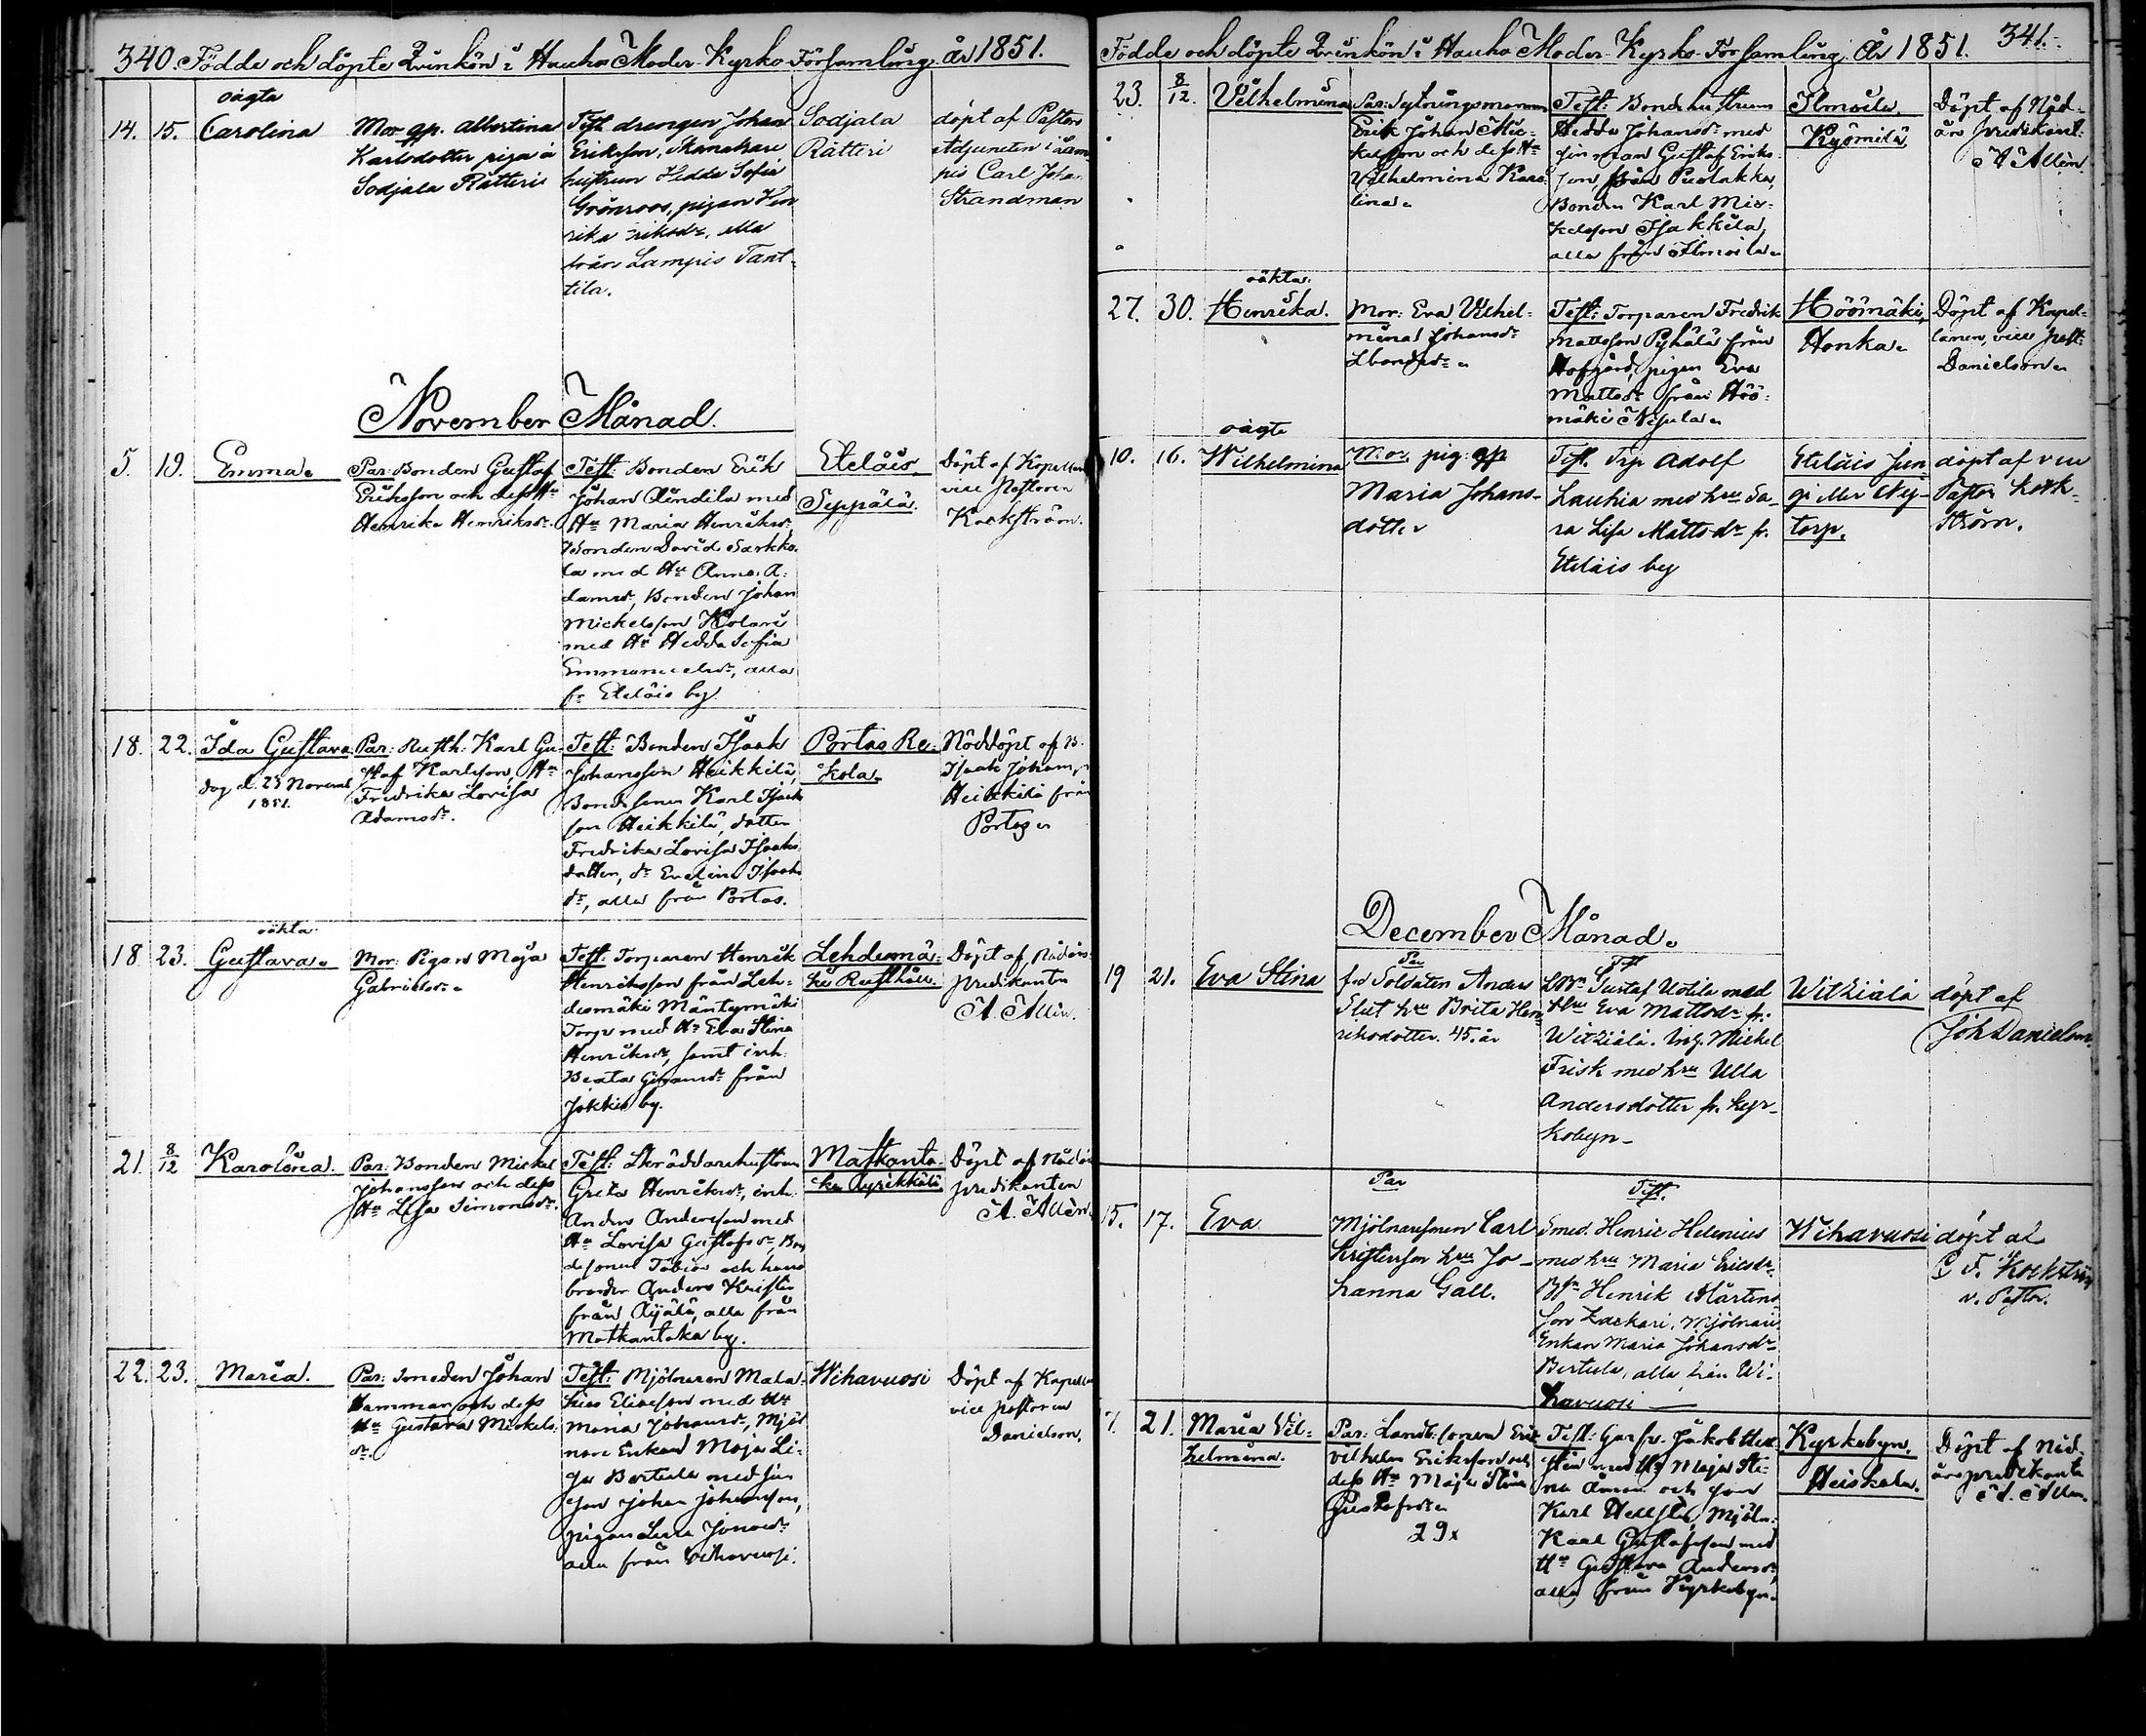 340. Födde och döpte Qvinkön i Hauho Moder-Kyrko-Församling år 1851.
14. 15. oägta
Carolina
Mor qp. Albertina
Karlsdotter piga å
Sodjala Rätteri
Test. drengen Johan
Eriksson,
hustrun Hedda Sofia
Grönroos, pigan Hen
rika
från Lampis Tant-
tila.
Sodjala
Rätteri
döpt af Pastors
Adjuncten i Lam
pis Carl Johan
Strandman
November Månad.
5. 19. Emma.
Par: Bonden Gustaf
Eriksson och dess Hu
Henrika Henriksdr.
Test: Bonden Erik
Johan med
Hu Maria Henriksdr
Bonden David Sarkko-
la med Hu Anna A-
damsdr, Bonden Johan
Mickelsson Kolari
med Hu Hedda Sofia
Emmanuelsdr, alla
fr Eteläis by.
Eteläis
Seppälä.
Döpt af Kapellan
vice Pastoren
Kockström.
18. 22. Ida Gustava
dog d. 23 Novemb
1851.
Par: Rusth: Karl Gu-
staf Karlsson, Hu
Fredrika Lovisa
Adamsdr.
Test: Bonden Isaak
Johansson Heikkilä,
Bondesonen Karl Isaks
son Heikkilä, dotter
Fredrika Lovisa Isaaks
dotter, dr Evelina Isaaks
dr, alla från Portas.
Portas Re-
kola.
Nöddöpt af B.
Isaak Johanss
Heikkilä från
Portas
18 23. oäkta
Gustava.
Mor: Pigan Maja
Gabrielsdr.
Test: Torparen Henrik
Henriksson från Leh-
desmäki Mäntymäki
Torp med Hu Eva Stina
Henriksdr, samt inh.
Beata från
Jokkis by.
Lehdesmä-
ki Rusthåll.
Döpt af Nådårs
predikanten
A. Allén.
21. 8/12 Karolina.
Par: Bonden Mickel
Johansson och dess
Hu Lisa Simonsdr.
Test: Skräddarehustrun
Greta Henriksdr, inh.
Anders Andersson med
Hu Lovisa Gustafsdr, Bon
desonen Tobias och hans
broder Anders Kristian
från Äijälä, alla från
Matkantaka by.
Matkanta-
ka
Döpt af Nådårs
predikanten
A. Allén.
22. 23. Maria.
Par: Smeden Johan
Hamman och dess
Hu Gustava Mickels-
dr.
Test: Mjölnaren Mala-
kias Eliasson med Hu
Maria Johansdr, Mjöl
nare Enkan Maja Li-
sa Bertula med sin
son Johan Johansson,
pigan Lena Jonasdr
alla från Vihavuosi.
Wihavuosi
Döpt af Kapella
vice pastoren
Danielson.
Födde och döpte Qvinkön i Hauho Moder-Kyrko-Församling. År 1851. 341.
23. 8/12. Vilhelmina
Par: Sytningsmannen
Erik Johan Mic-
kelsson och dess Hu
Vilhelmina Karo-
lina.
Test: Bondehustrun
Hedda Johansdr med
sin man Gustaf Eriks-
son, från Puolakka,
Bonden Karl Mic-
kelsson Isakkila,
alla från Ilmoila.
Ilmoila.
Kyömilä.
Döpt af Nåd-
års predikant:
A Allén.
27. 30. oäkta.
Henrika.
Mor: Eva Vilhel-
mina Johansdr
Test: Torparen Fredrik
Mattsson Pyhälä från
Hofgård, pigan Eva
Mattsdr från Höö-
mäki
Höömäki,
Honka.
Döpt af Kapel-
lanen, vice past:
Danielson.
10. 16. oägte
Wilhelmina
Mor. pig: qp
Maria Johans-
dotter
Test. Trp Adolf
Lauhia med hru Sa-
ra Lisa Mattsdr fr.
Eteläis by
Eteläis Jun
gi eller Ny-
torp.
döpt af vice
Pastor Kock-
ström.
December Månad.
19 21. Eva Stina
Par
f.d Soldaten Anders
Slut hru Brita Hen-
riksdotter. 45. år
Test
Gustaf Uotila med
Hru Eva Mattsdr fr.
Witziälä. Mickel
Frisk med hru Ulla
Andersdotter fr. Kyr-
kobyn-
Witziälä
döpt af
Joh Danielson
15. 17. Eva
Par
Mjölnaresonen Carl
Kristersson hru Jo-
hanna Gall.
Test.
Smed. Henric Helenius
med hru Maria Ericsdr
Henrik Mårtens
son Zackari, Mjölnare
Enkan Maria Johansdr
Bertula, alla från Wi-
havuosi
Wihavuosi
döpt af
C F. Kockström
v. Pastor.
7. 21. Maria Vil-
helmina.
Par: Landb. sonen Erik
Vilhelm Eriksson och
dess Hu Maja Stina
Gustafsdr
29x
Test: Jakob Hell
stén med Hu Maja Sti-
na och son
Karl Hellstén, Mjöln.
Karl Gustafsson med
Hu Gustava Andersdr,
alla från Kyrkobyn.
Kyrkobyn.
Heiskala.
Döpt af Nåd-
års predikanten
A. Allén.